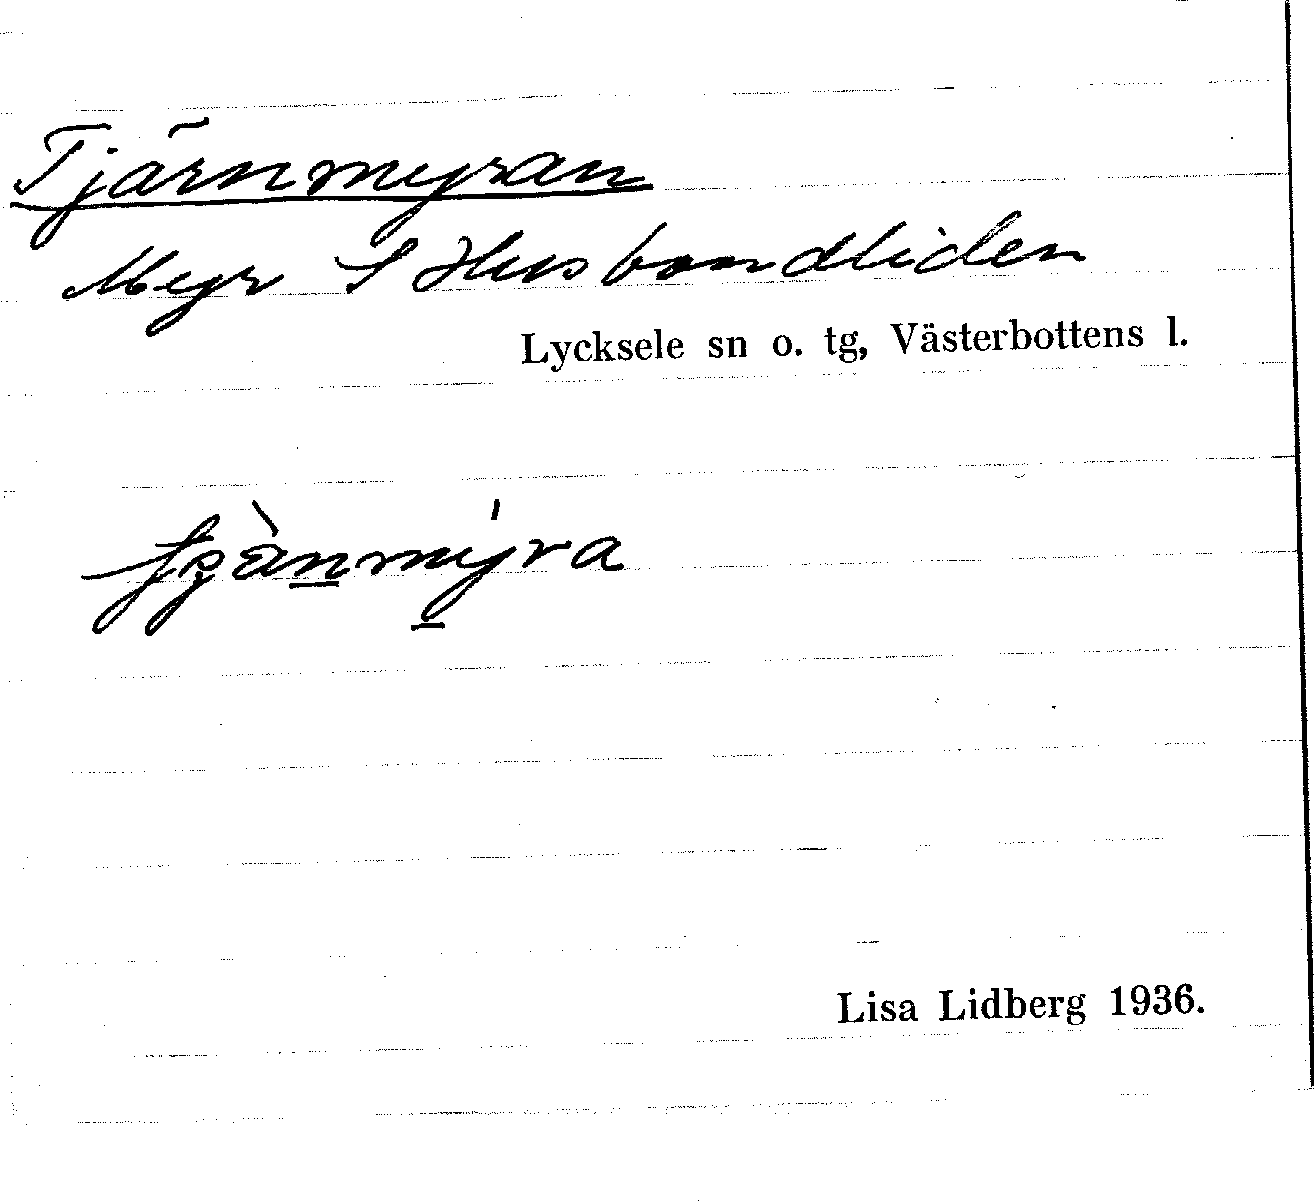 Tjärnmyran
Myr S Husbondliden
Lycksele sn o. tg, Västerbottens l.
Lisa Lidberg 1936.